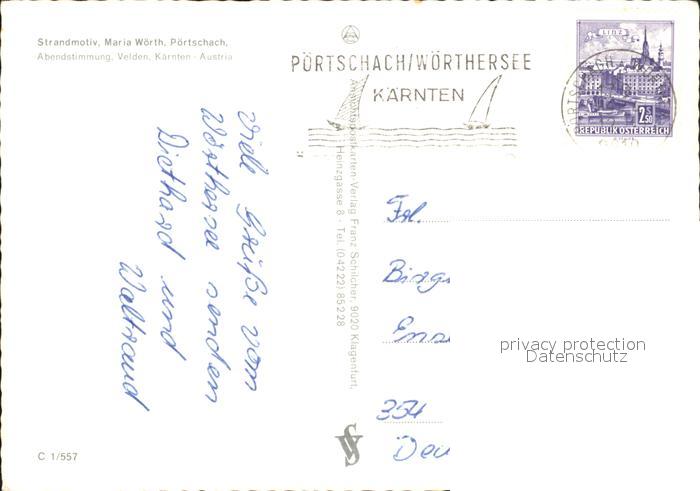 Strandmotiv, Maria Wörth, Pörtschach,
Abendstimmung, Velden, Kärnten - Austria
PÖRTSCHACH/WÖRTHERSEE
KÄRNTEN
LINZ
2 S 50
REPUBLIK ÖSTERREICH
9210
Viele Grüße vom
Wörthersee senden
Diethard und
Waltraud
Ansichtspostkarten-Verlag Franz Schilcher, 9020 Klagenfurt,
Heinzgasse 8 · Tel. (04222) 85228
Frl.
354
privacy protection
Datenschutz
C 1/557